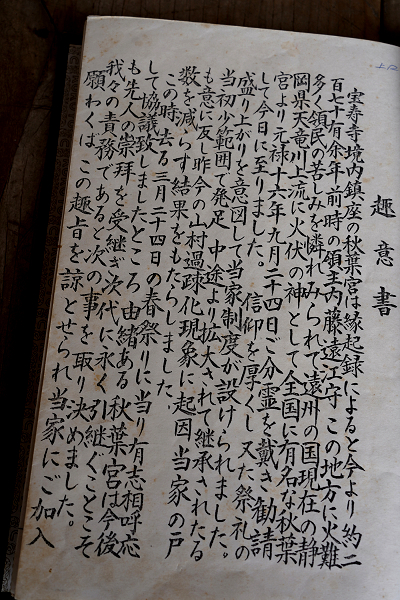 趣意書
宝寿寺境内鎮座の秋葉宮は縁起録によると今より約二
百七十有余年前時の領主内藤遠江守この地方に火難
多く領民の苦しみを憐れみられて遠州の国現在の静
岡県天竜川上流に火伏の神として全国に有名な秋葉
宮より元禄十六年九月二十四日ご分霊を戴き勧請
して今日に至りました。信仰を厚くし又た祭礼の
盛り上がりを意図して当家制度が設けられました。
当初少範囲で発足中途より拡大されて継承されたる
も意に反し昨今の山村過疎化現象に起因当家の戸
数を減らす結果をもたらしました。
この時去る三月二十四日の春祭りに当り有志相呼応
して協議致しましたところ由緒ある秋葉宮は今後
も先人の崇拝を受継ぎ次代に永く引継ぐことこそ
我々の責務であると次の事を取り決めました。
願わくはこの趣旨を諒とせられ当家にご加入